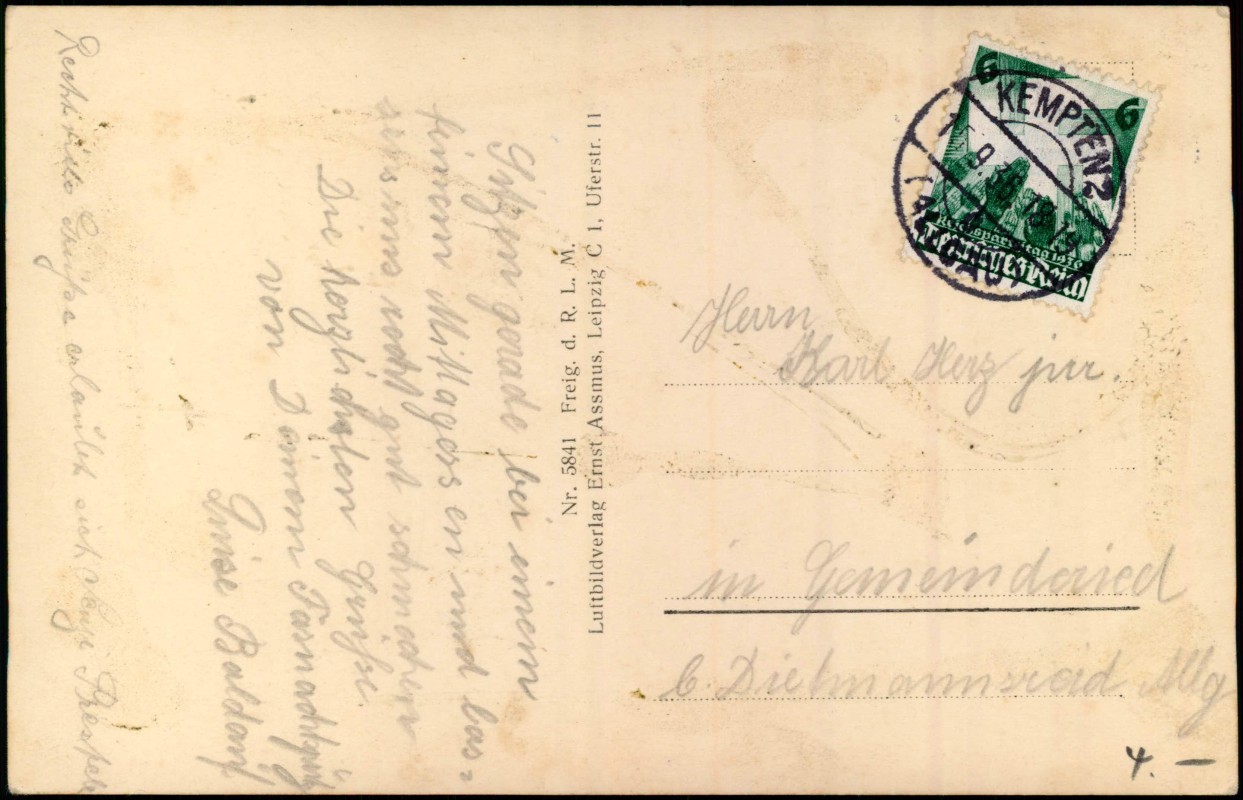 Sitzen gerade bei einem
feinen Mittagessen und las=
sen uns recht gut schmecken
Die herzlichsten Grüße
von Deinem
Luise Baldauf
Recht viele Grüße erlaubt sich
Nr. 5841 Freig. d. R. L. M.
Luftbildverlag Ernst Assmus, Leipzig C 1, Uferstr. 11
6 6
Reichsparteitag 1936
Deutsches Reich
KEMPTEN 2
9.36
(ALLGÄU)
Herrn
Karl Herz jun.
in Gemeinderied
b. Dietmannsried Allg
4. —